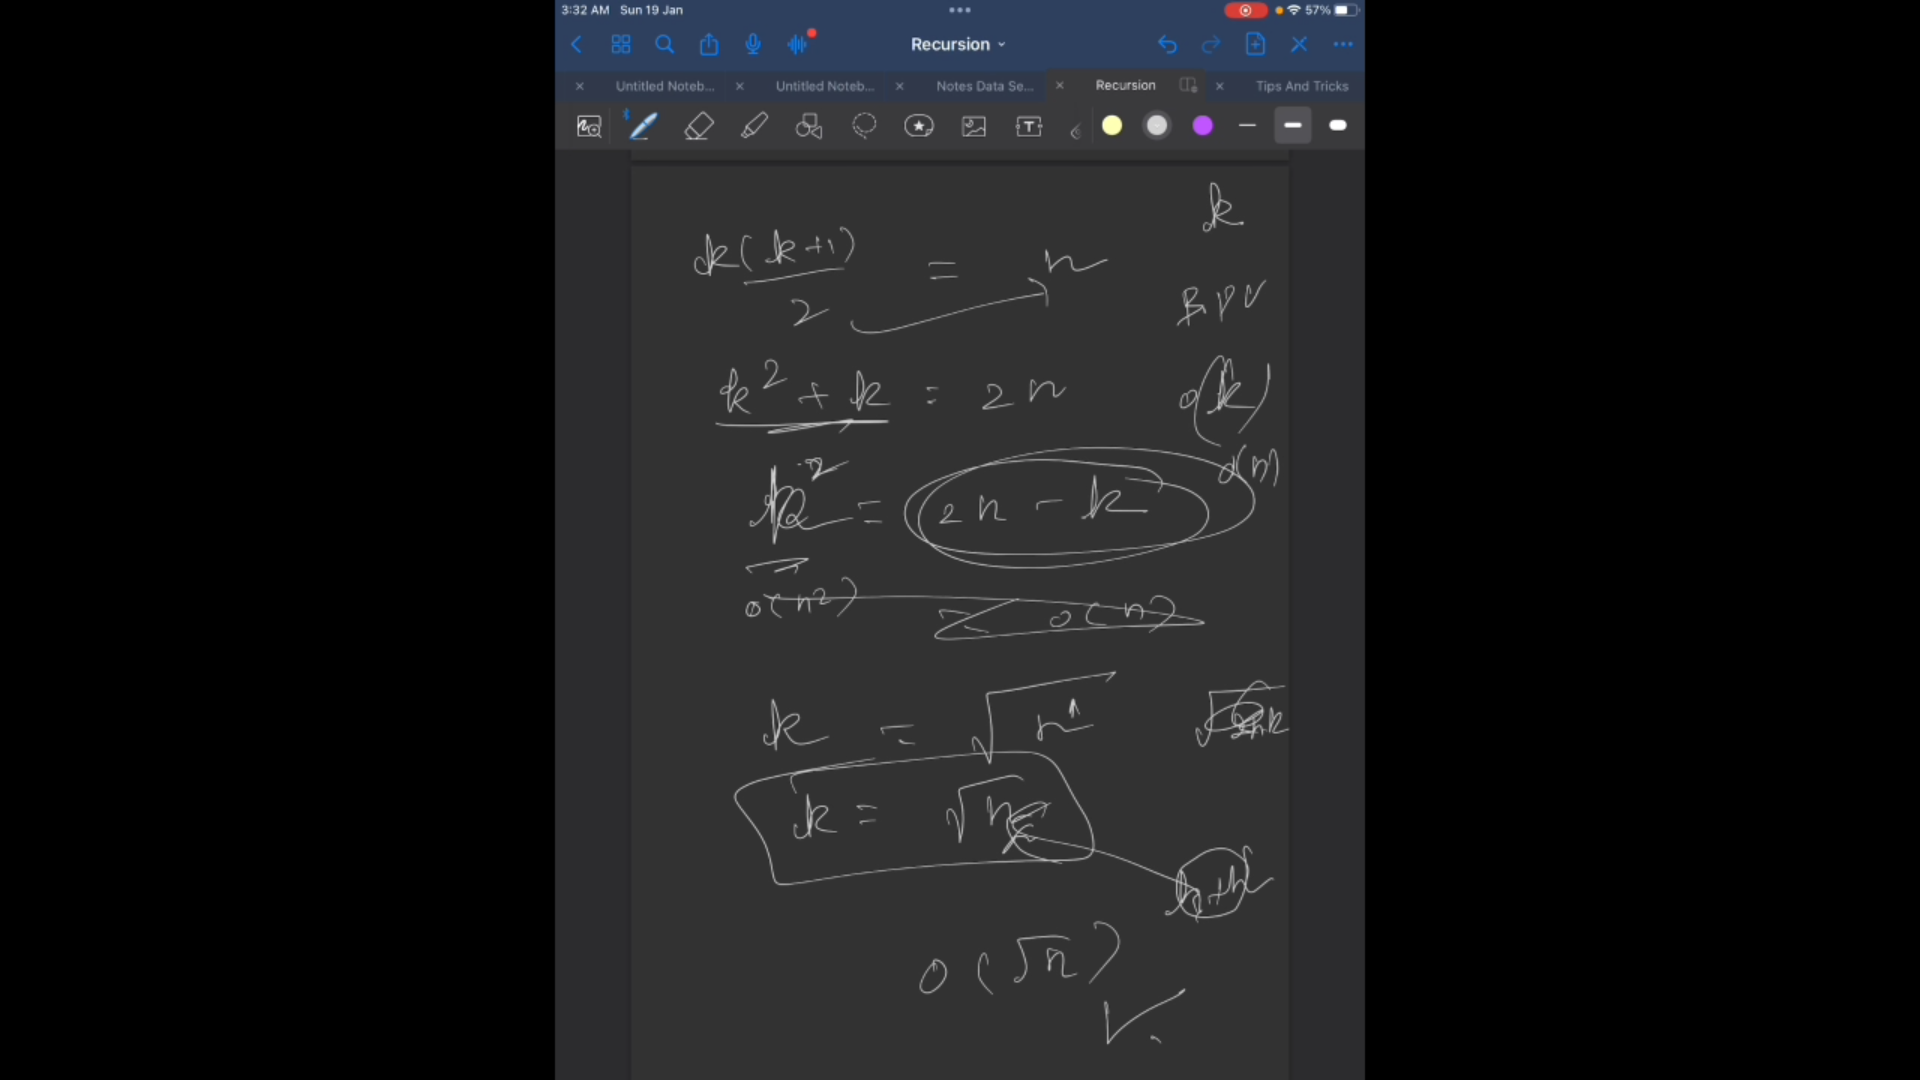 3:32 AM Sun 19 Jan 57%
Recursion
Untitled Noteb... Untitled Noteb... Notes Data Se... Recursion Tips And Tricks
k
k(k+1)/2 = n
k² + k = 2n
O(k)
O(n)
k² = 2n - k
O(n²) O(n)
k = √n
k = √n
O(√n)